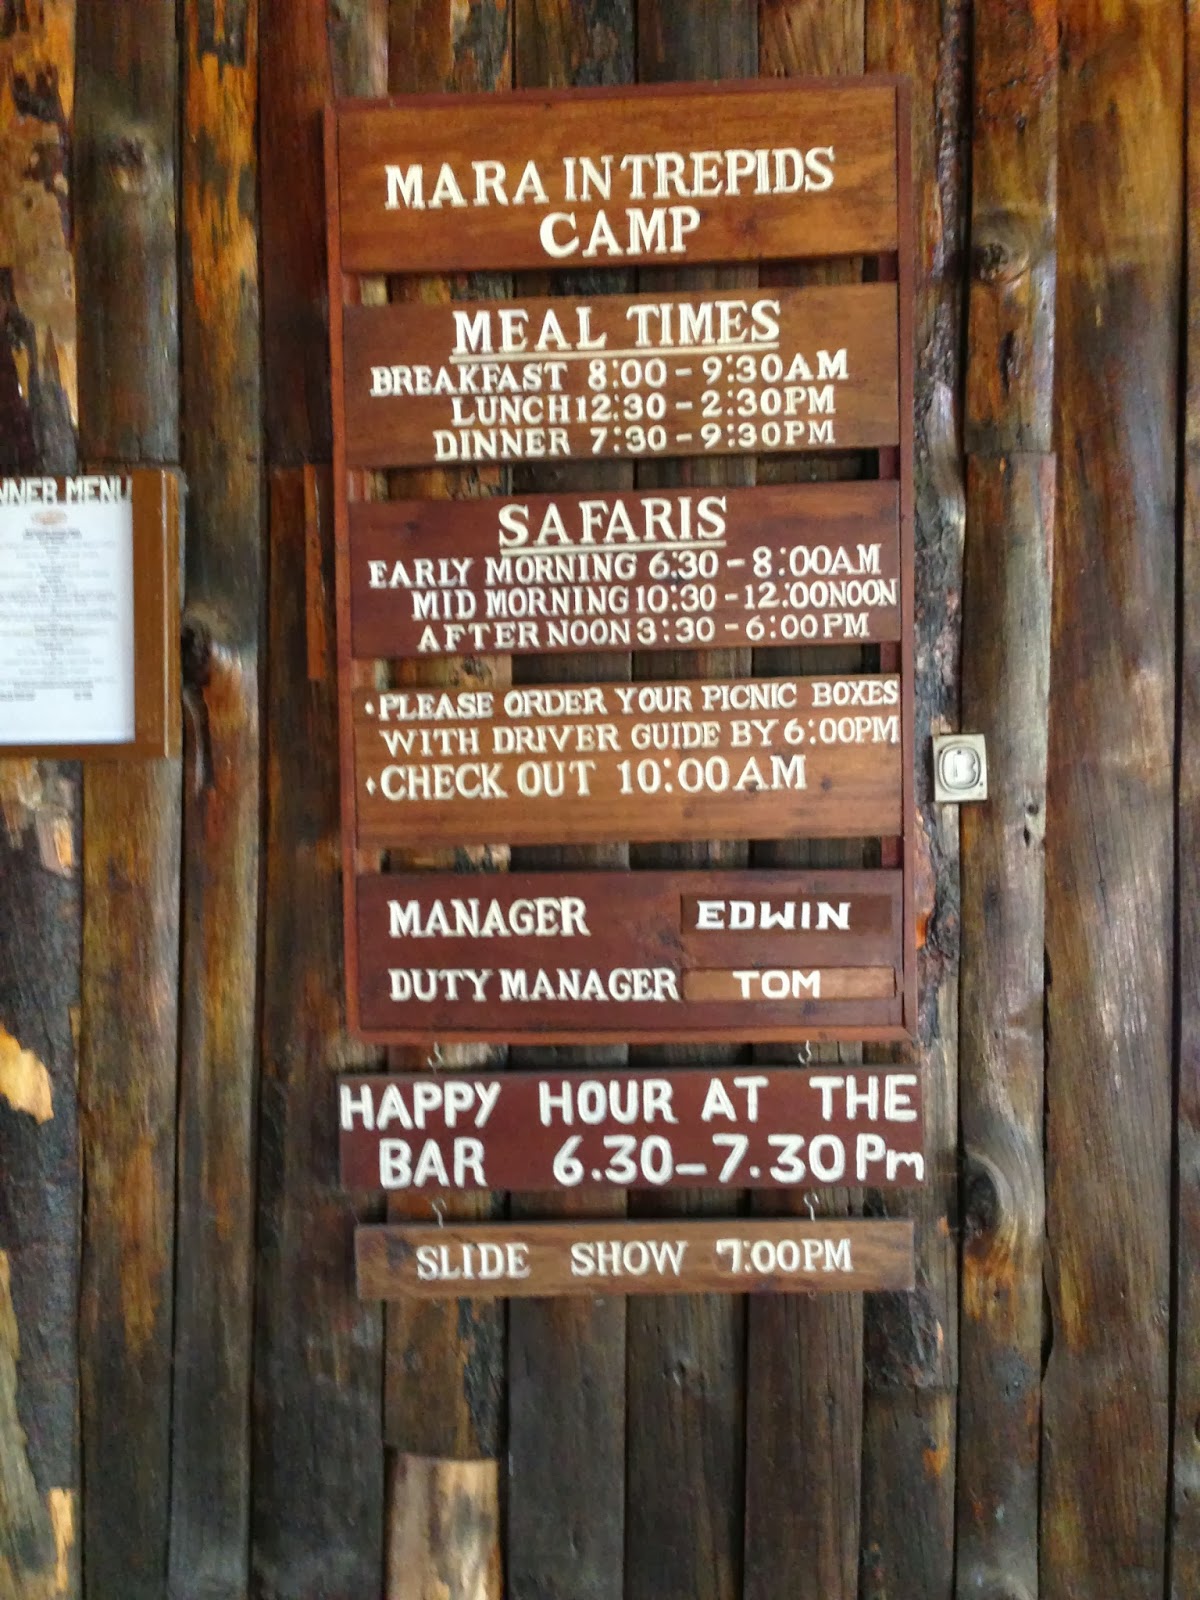 MARA INTREPIDS
CAMP
MEAL TIMES
BREAKFAST 8:00 - 9:30AM
LUNCH 12:30 - 2:30PM
DINNER 7:30 - 9:30PM
SAFARIS
EARLY MORNING 6:30 - 8:00AM
MID MORNING 10:30 - 12:00NOON
AFTERNOON 3:30 - 6:00PM
• PLEASE ORDER YOUR PICNIC BOXES
WITH DRIVER GUIDE BY 6:00PM
• CHECK OUT 10:00AM
MANAGER EDWIN
DUTY MANAGER TOM
HAPPY HOUR AT THE
BAR 6.30-7.30Pm
SLIDE SHOW 7:00PM
NNER MENU